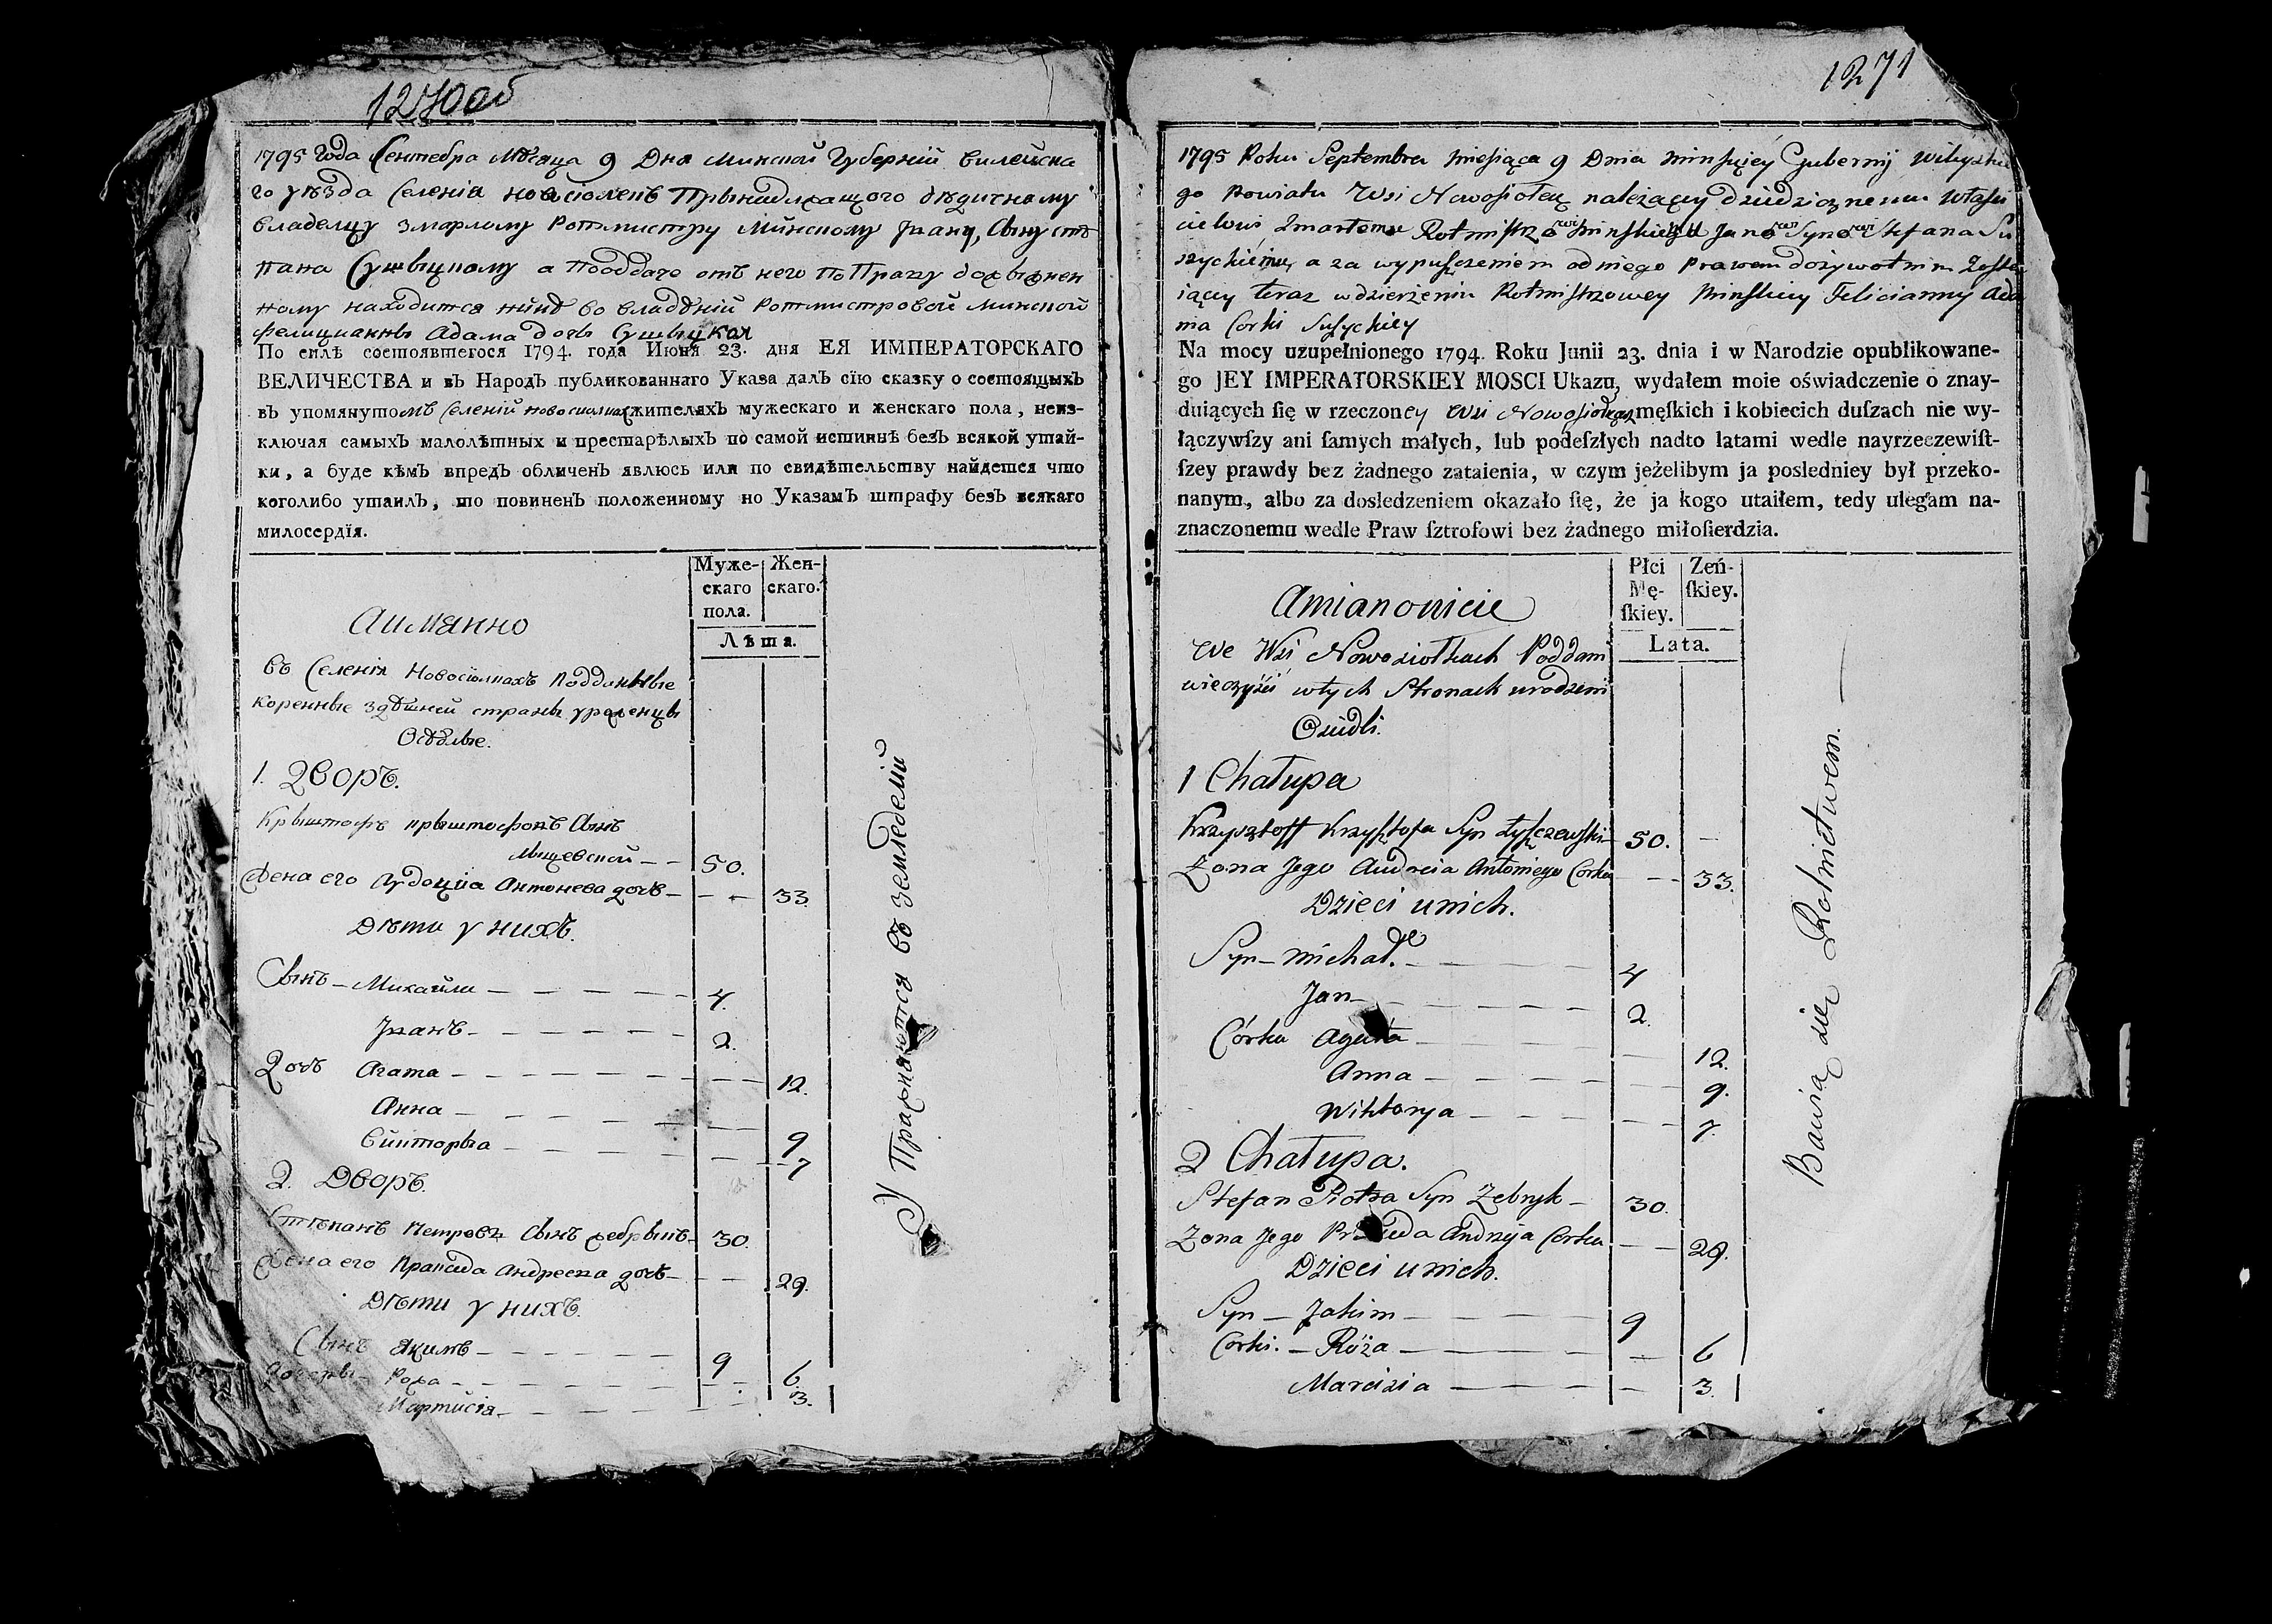 1270 об
1795 Года Сентебра Мѣсяца 9 Дна Минской Губерніи Вилейска
го уѣзда Селенія Новосіолекъ Прынадлжащого дѣдичному
Владелцу змарлому Ротмистру Минскому Јвану, Сыну сте
пана Сушыцкому а Пооддачѣ отъ него по Праву дожывнен
ному находится нинѣ во владѣній Ротмистровой Минской
фелицианны Адама дочь Сушыцкая
По силѣ состоявшегося 1794. года Июня 23. дня ЕЯ ИМПЕРАТОРСКАГО
ВЕЛИЧЕСТВА и въ Народъ публикованнаго Указа далъ сїю сказку о состоящыхъ
въ упомянутомъ Селеніи Новосиолкахъ жителяхъ мужескаго и женскаго пола, неиз-
ключая самыхъ малолѣтныхъ и престарѣлыхъ по самой истиннѣ безъ всякой утай-
ки, а буде кѣмъ впредъ обличенъ явлюсь или по свидѣтельству найдется что
коголибо утаилъ, то повиненъ положенному но Указамъ штрафу безъ всякаго
милосердїя.
Муже-
скаго
пола.
Жен-
скаго.
Лѣта.
Аимянно
въ Селенія Новосіолкахъ Подданные
коренные здѣшней страны уроженцы
Осѣдлые.
1. Дворъ.
Крыштофъ крыштофовъ Сынъ
Лыщевской — — 50.
Жена его Аудоция Антонева дочъ — — — 33.
Дѣти у нихъ.
Сынъ — Михайли — — — 4.
Јванъ — — — 2.
Дочъ Агата — — — 12.
Анна — — — 9
Викторыа — — — 7
2. Дворъ.
Стѣпанъ Петровъ Сынъ жебрыкъ — 30.
Жена его Праксида Андреева дочъ — — 29.
Дѣти у нихъ.
Сынъ Якимъ — — — 9
дочеры — Рожа — — — 6.
Мартисія — — — 3.
У Пражняются въ земледеліи
1271
1795 Roku Septembra Miesiąca 9 Dnia Minskiey Gubernij Wileyskie
go Powiatu Wsi Nowosiołek należącey dziedzicznemu Własci
cielowi Zmarłemu Rotmistrzowi Minskiemu Janowi Synowi Stefana Su
szyckiemu, a za wypuszczeniem od niego Prawem dożywotnim Zosta
iący teraz w dzierżeniu Rotmistrzowey Minskiey Felicianny Ada
ma Corki Suszyckiey
Na mocy uzupełnionego 1794. Roku Junii 23. dnia i w Narodzie opublikowane-
go JEY IMPERATORSKIEY MOSCI Ukazu, wydałem moie oświadczenie o znay-
duiących ſię w rzeczoney Wsi Nowosiołkach męſkich i kobiecich duſzach nie wy-
łączywſzy ani ſamych małych, lub podeſzłych nadto latami wedle nayrzeczewiſt-
ſzey prawdy bez żadnego zataienia, w czym jeżelibym ja posledniey był przeko-
nanym, albo za dosledzeniem okazało ſię, że ja kogo utaiłem, tedy ulegam na-
znaczonemu wedle Praw ſztrofowi bez żadnego miłoſierdzia.
Płci
Mę-
ſkiey.
Zeń-
ſkiey.
Lata.
Amianowicie
We Wsi Nowosiołkach Poddani
wieczyści w tych Stronach urodzeni
Osiedli.
1 Chałupa
Krzysztoff Krzysztofa Syn Łyszczewski — 50. —
Zona Jego Audocia Antoniego Corka — — 33.
Dzieci u nich.
Syn — Michał. — — — 4
Jan — — — 2.
Córka Agata — — — 12.
Anna — — — 9.
Wiktorya — — — 7.
2 Chałupa.
Stefan Piotra Syn Zebryk — 30.
Zona Jego Andrzeja Corka — — 29.
Dzieci u nich.
Syn — Jakim — — — 9
Corki. — Róża — — — 6
Marcisia — — — 3.
Bawią się Rolnictwem. —